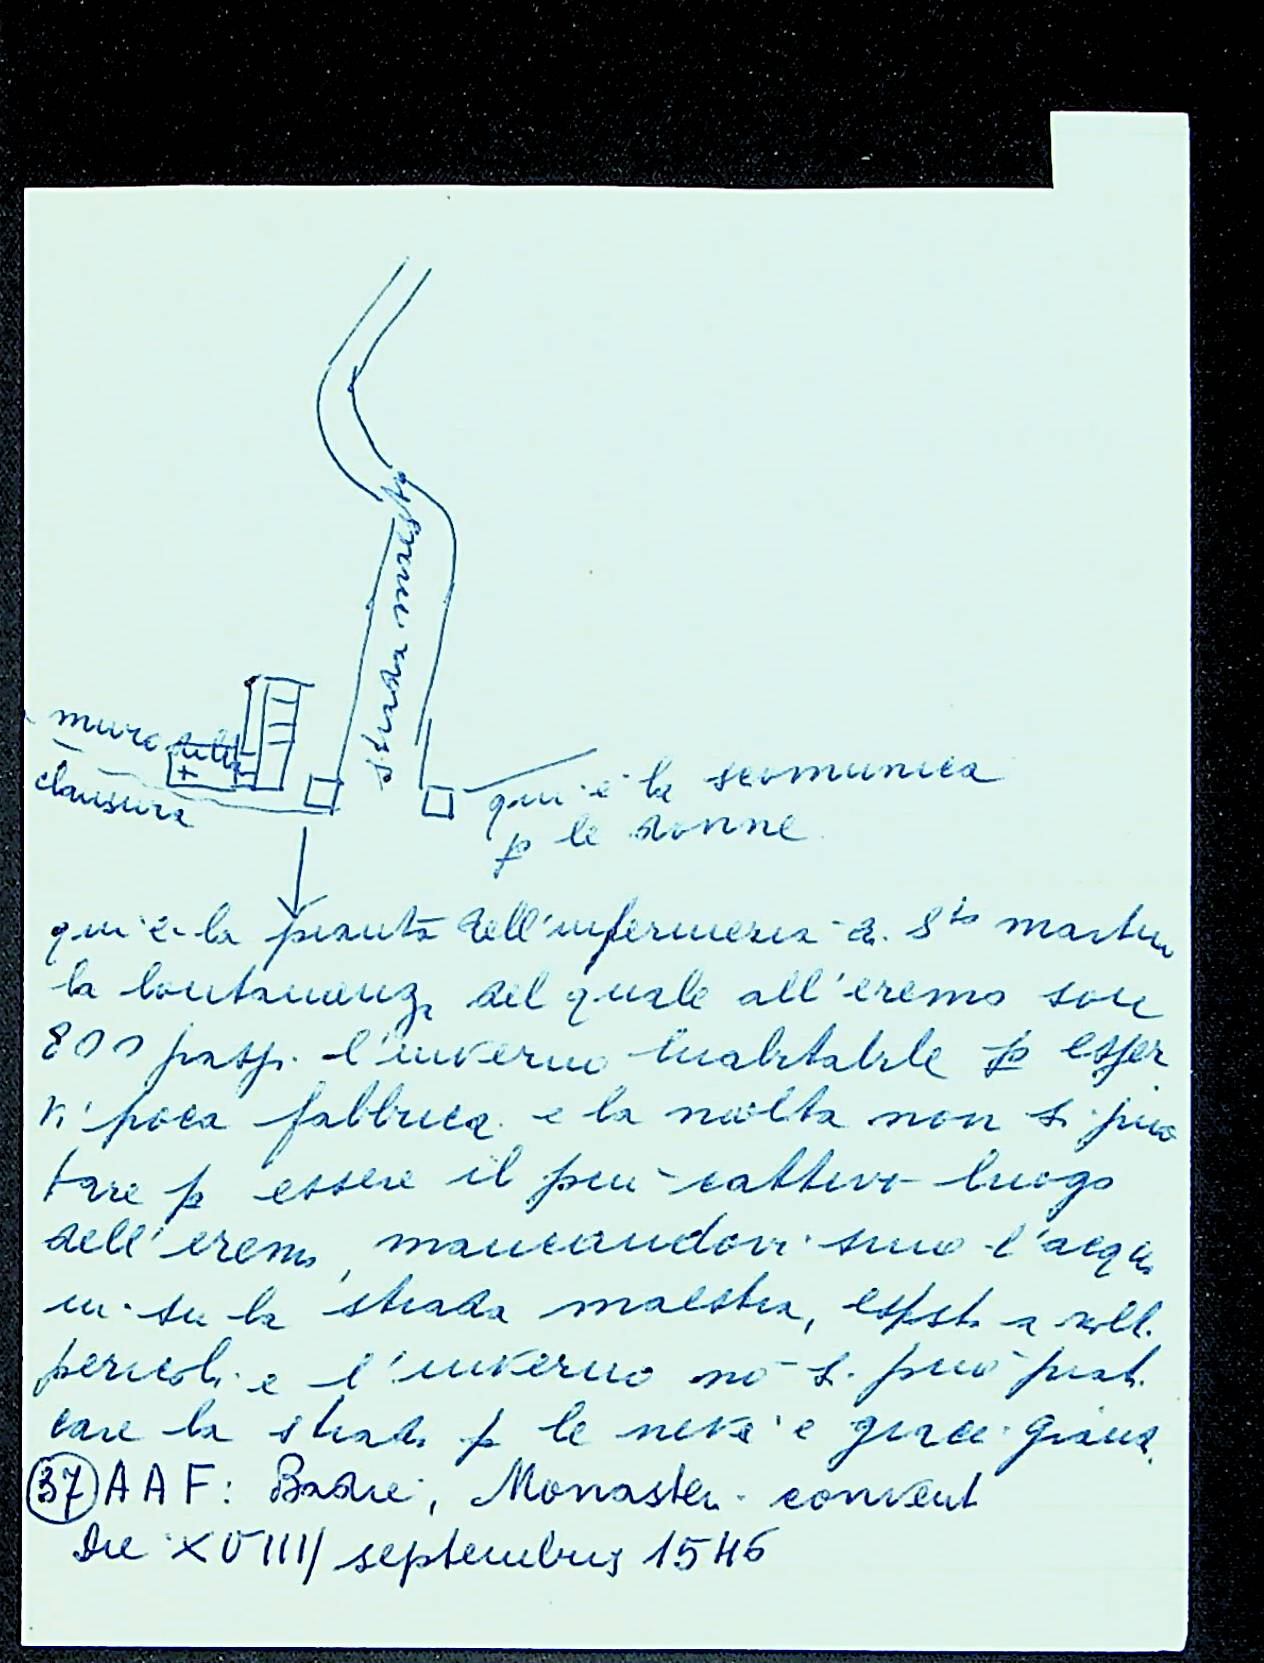 strada maestra
muro della
clausura
qui è la scomunica
p le donne
qui è la pianta dell'infermeria di Sto Martin
la lontananza del quale all'eremo son
800 passi. l'inverno inabitabile p esser
vi poca fabbrica e la molta non si può
fare p essere il più cattivo luogo
dell'eremo, mancandovi sino l'acqua
in su la strada maestra, espsta a mill.
pericoli e l'inverno nō si può prati
care la strada p le neve e giacci
37 AAF: Badie, Monasteri convent
Die XVIII septembris 1546